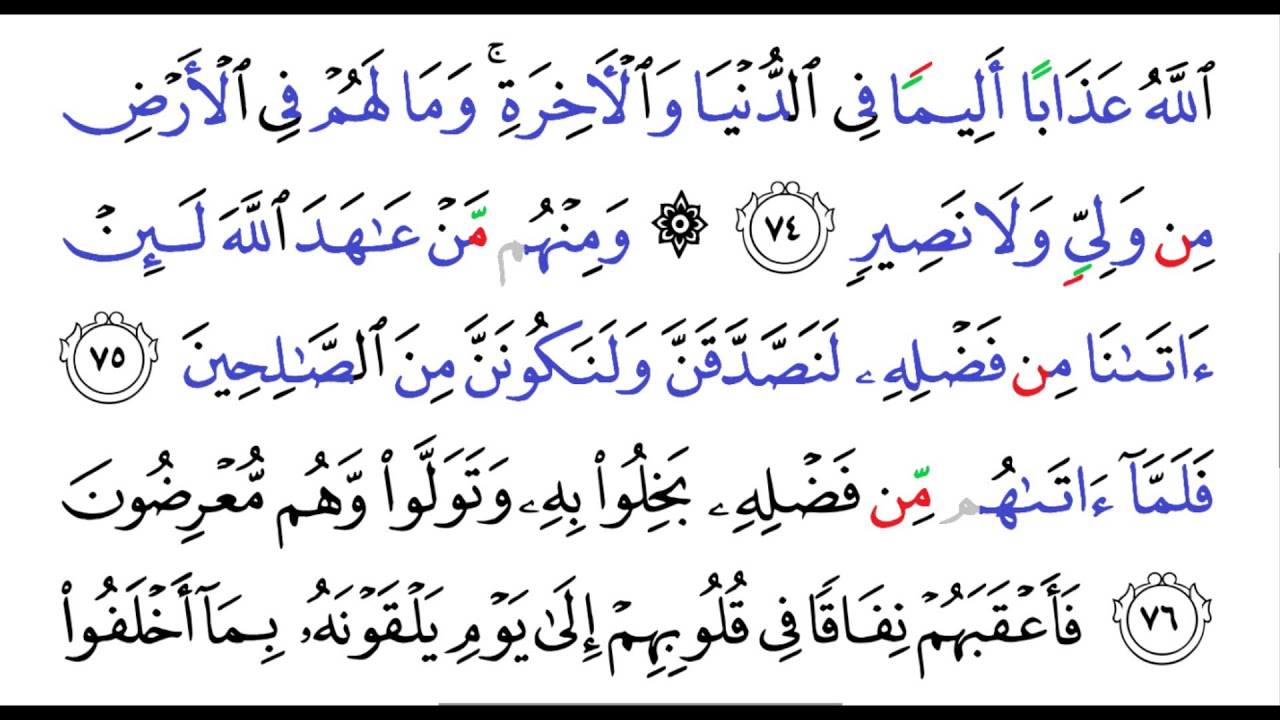 ٱللَّهُ عَذَابًا أَلِيمًا فِى ٱلدُّنْيَا وَٱلْأَخِرَةِ ۚ وَمَا لَهُمْ فِى ٱلْأَرْضِ
مِن وَلِىٍّ وَلَا نَصِيرٍ ٧٤ ۞ وَمِنْهُم مَّنْ عَـٰهَدَ ٱللَّهَ لَـئِنْ
ءَاتَىٰنَا مِن فَضْلِهِۦ لَنَصَّدَّقَنَّ وَلَنَكُونَنَّ مِنَ ٱلصَّـٰلِحِينَ ٧٥
فَلَمَّآ ءَاتَىٰهُم مِّن فَضْلِهِۦ بَخِلُوا۟ بِهِۦ وَتَوَلَّوا۟ وَّهُم مُّعْرِضُونَ
٧٦ فَأَعْقَبَهُمْ نِفَاقًا فِى قُلُوبِهِمْ إِلَىٰ يَوْمِ يَلْقَوْنَهُۥ بِمَآ أَخْلَفُوا۟